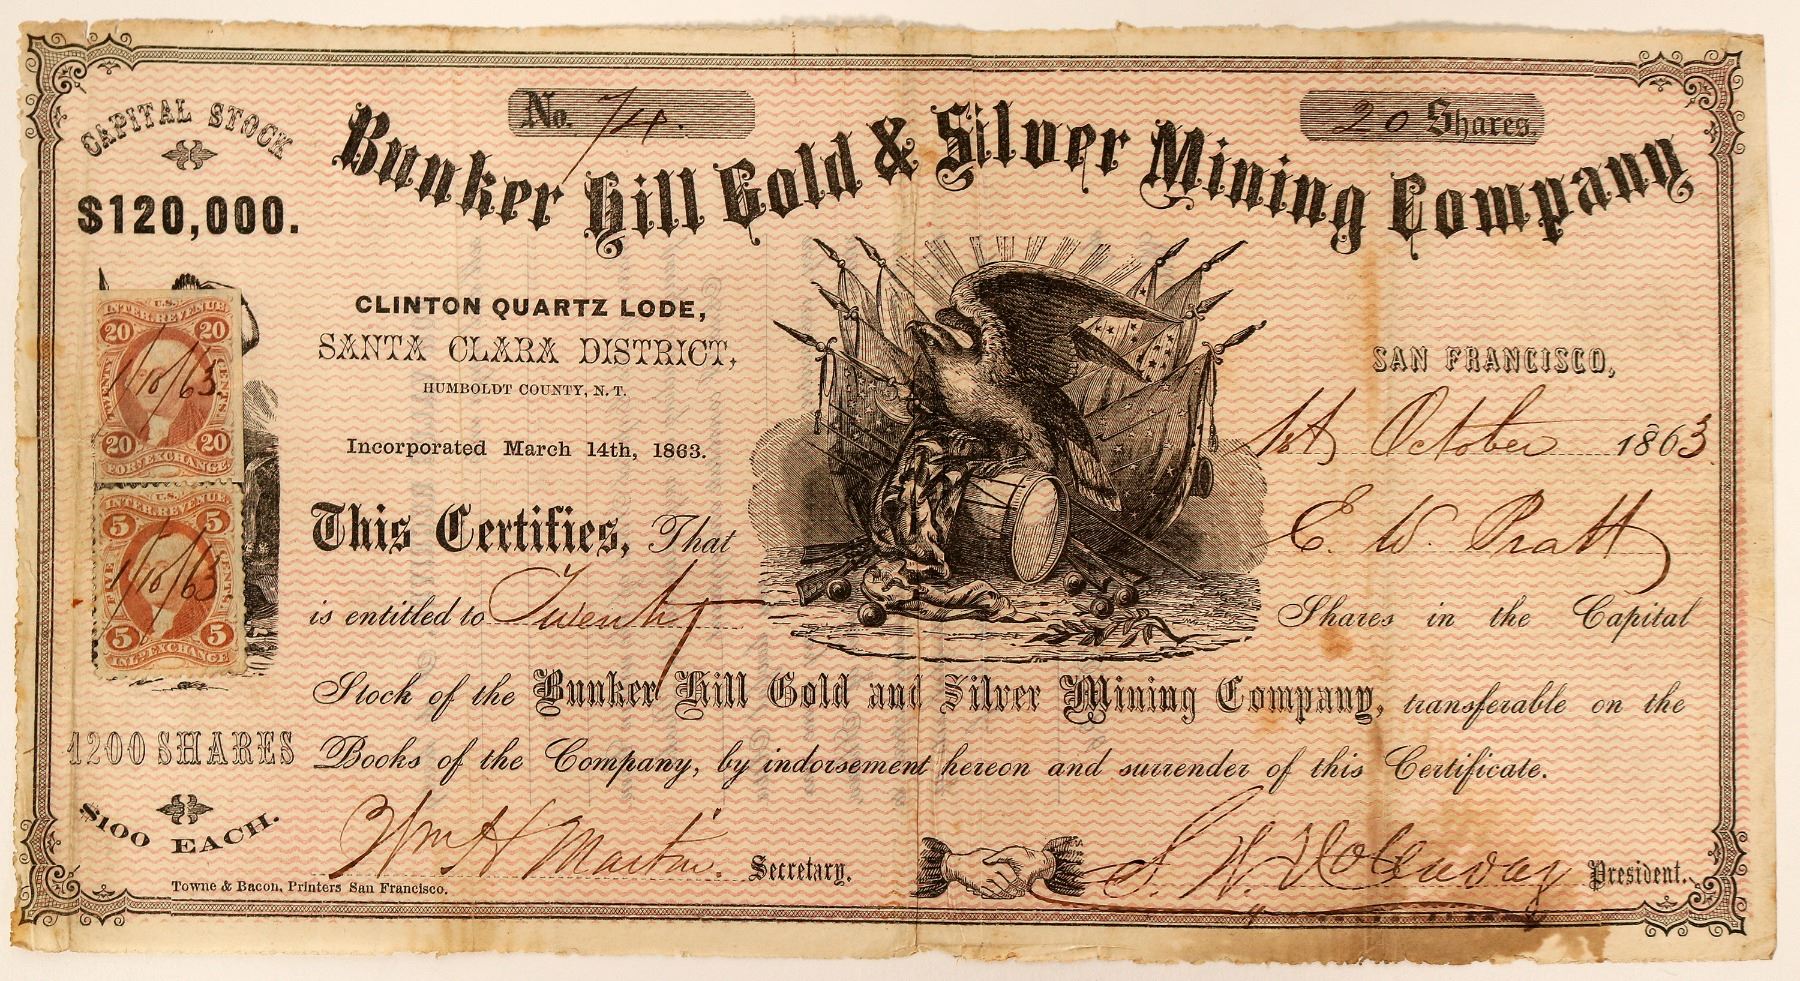 No. 74.
20 Shares.
CAPITAL STOCK
$120,000.
Bunker Hill Gold & Silver Mining Company
CLINTON QUARTZ LODE,
SANTA CLARA DISTRICT,
HUMBOLDT COUNTY, N. T.
Incorporated March 14th, 1863.
SAN FRANCISCO,
1st October 1863.
U.S.
INTER. REVENUE
20 20
TWENTY CENTS
1/10/63
20 20
FOR. EXCHANGE
U.S.
INTER. REVENUE
5 5
FIVE CENTS
1/10/63
5 5
INL. EXCHANGE
This Certifies, That E. W. Pratt
is entitled to Twenty Shares in the Capital
Stock of the Bunker Hill Gold and Silver Mining Company, transferable on the
Books of the Company, by indorsement hereon and surrender of this Certificate.
1200 SHARES
$100 EACH.
Wm H Martin. Secretary.
S. W. President.
Towne & Bacon, Printers San Francisco.